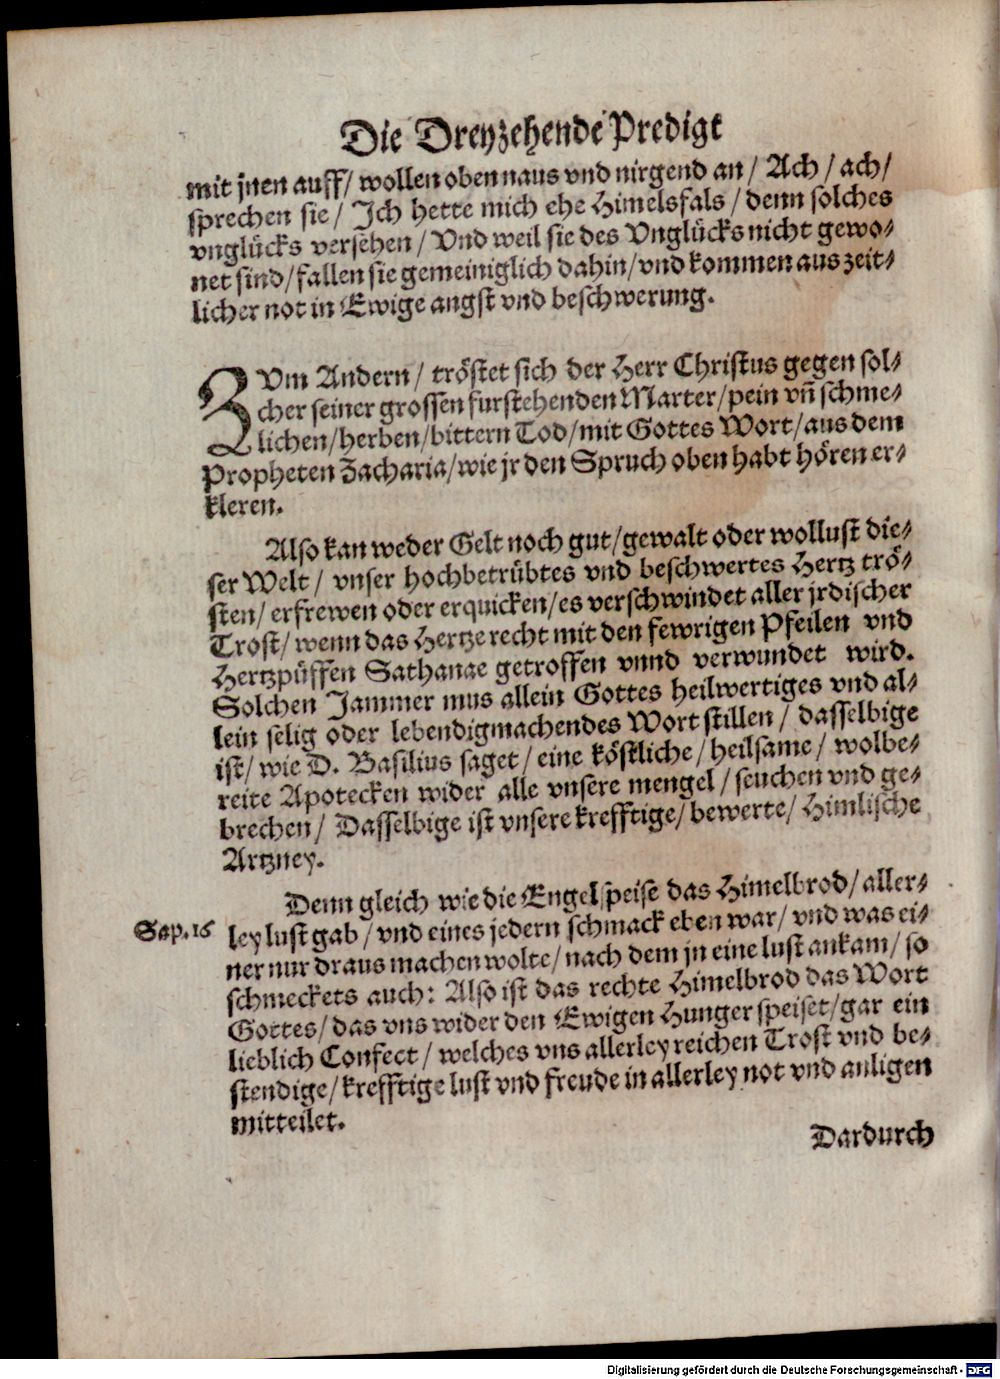 Die Dreyzehende Predigt
mit jnen auff/ wollen oben naus vnd nirgend an/ Ach/ ach/
sprechen sie/ Ich hette mich ehe Himelsfals/ denn solches
vnglücks versehen/ Vnd weil sie des Vnglücks nicht gewo-
net sind/ fallen sie gemeiniglich dahin/ vnd kommen aus zeit-
licher not in Ewige angst vnd beschwerung.
ZVm Andern/ tröstet sich der Herr Christus gegen sol-
cher seiner grossen furstehenden Marter/ pein vñ schme-
lichen/ herben/ bittern Tod/ mit Gottes Wort/ aus dem
Propheten Zacharia/ wie jr den Spruch oben habt hören er-
kleren.
Also kan weder Gelt noch gut/ gewalt oder wollust die-
ser Welt/ vnser hochbetrübtes vnd beschwertes Hertz trö-
sten/ erfrewen oder erquicken/ es verschwindet aller jrdischer
Trost/ wenn das Hertze recht mit den fewrigen Pfeilen vnd
Hertzpüffen Sathanae getroffen vnnd verwundet wird.
Solchen Jammer mus allein Gottes heilwertiges vnd al-
lein selig oder lebendigmachendes Wort stillen/ dasselbige
ist/ wie D. Basilius saget/ eine köstliche/ heilsame/ wolbe-
reite Apotecken wider alle vnsere mengel/ seuchen vnd ge-
brechen/ Dasselbige ist vnsere krefftige/ bewerte/ Himlische
Artzney.
Denn gleich wie die Engelspeise das Himelbrod/ aller-
Sap. 16 ley lust gab/ vnd eines jedern schmack eben war/ vnd was ei-
ner nur draus machen wolte/ nach dem jn eine lust ankam/ so
schmeckets auch: Also ist das rechte Himelbrod das Wort
Gottes/ das vns wider den Ewigen Hunger speiset/ gar ein
lieblich Confect/ welches vns allerley reichen Trost vnd be-
stendige/ krefftige lust vnd freude in allerley not vnd anligen
mitteilet.
Dardurch
Digitalisierung gefördert durch die Deutsche Forschungsgemeinschaft - DFG